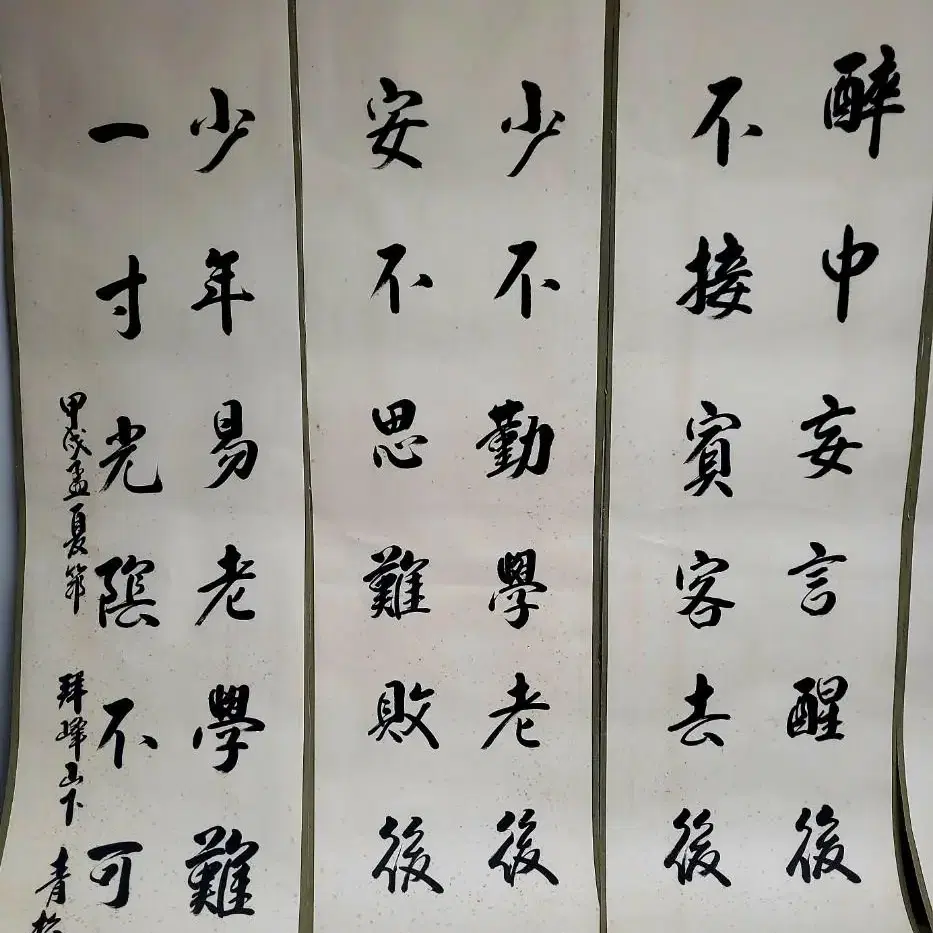 醉中妄言醒後
不接賓客去後
少不勤學老後
安不思難敗後
少年易老學難
一寸光陰不可
甲戌孟夏筆 拜峰山下 青松